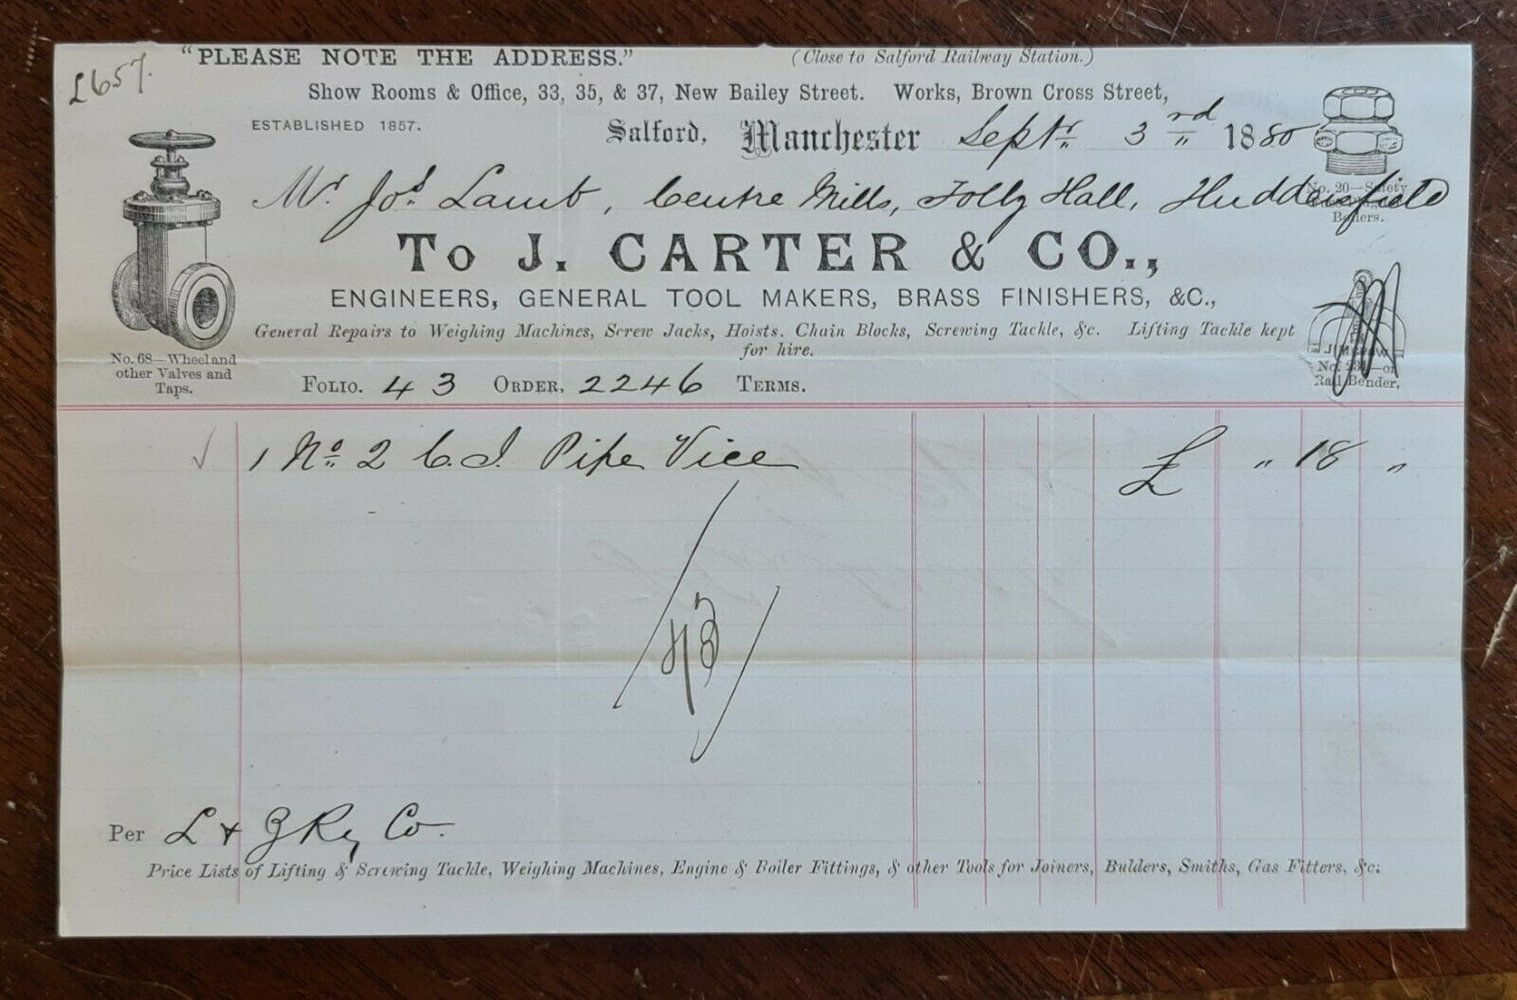 £657.
"PLEASE NOTE THE ADDRESS." (Close to Salford Railway Station.)
Show Rooms & Office, 33, 35, & 37, New Bailey Street. Works, Brown Cross Street,
ESTABLISHED 1857. Salford, Manchester Septr. 3rd 1880
Mr. Jos. Lamb, Centre Mills, Folly Hall, Huddersfield
No. 20—Safety
Boilers.
To J. CARTER & CO.,
ENGINEERS, GENERAL TOOL MAKERS, BRASS FINISHERS, &C.,
General Repairs to Weighing Machines, Screw Jacks, Hoists, Chain Blocks, Screwing Tackle, &c. Lifting Tackle kept
for hire.
No. 68—Wheel and
other Valves and
Taps.
Rail Bender.
FOLIO. 43 ORDER, 2246 TERMS.
1 No. 2 C.I. Pipe Vice £ " 18 "
Per L & Y Ry Co.
Price Lists of Lifting & Screwing Tackle, Weighing Machines, Engine & Boiler Fittings, & other Tools for Joiners, Bulders, Smiths, Gas Fitters, &c.